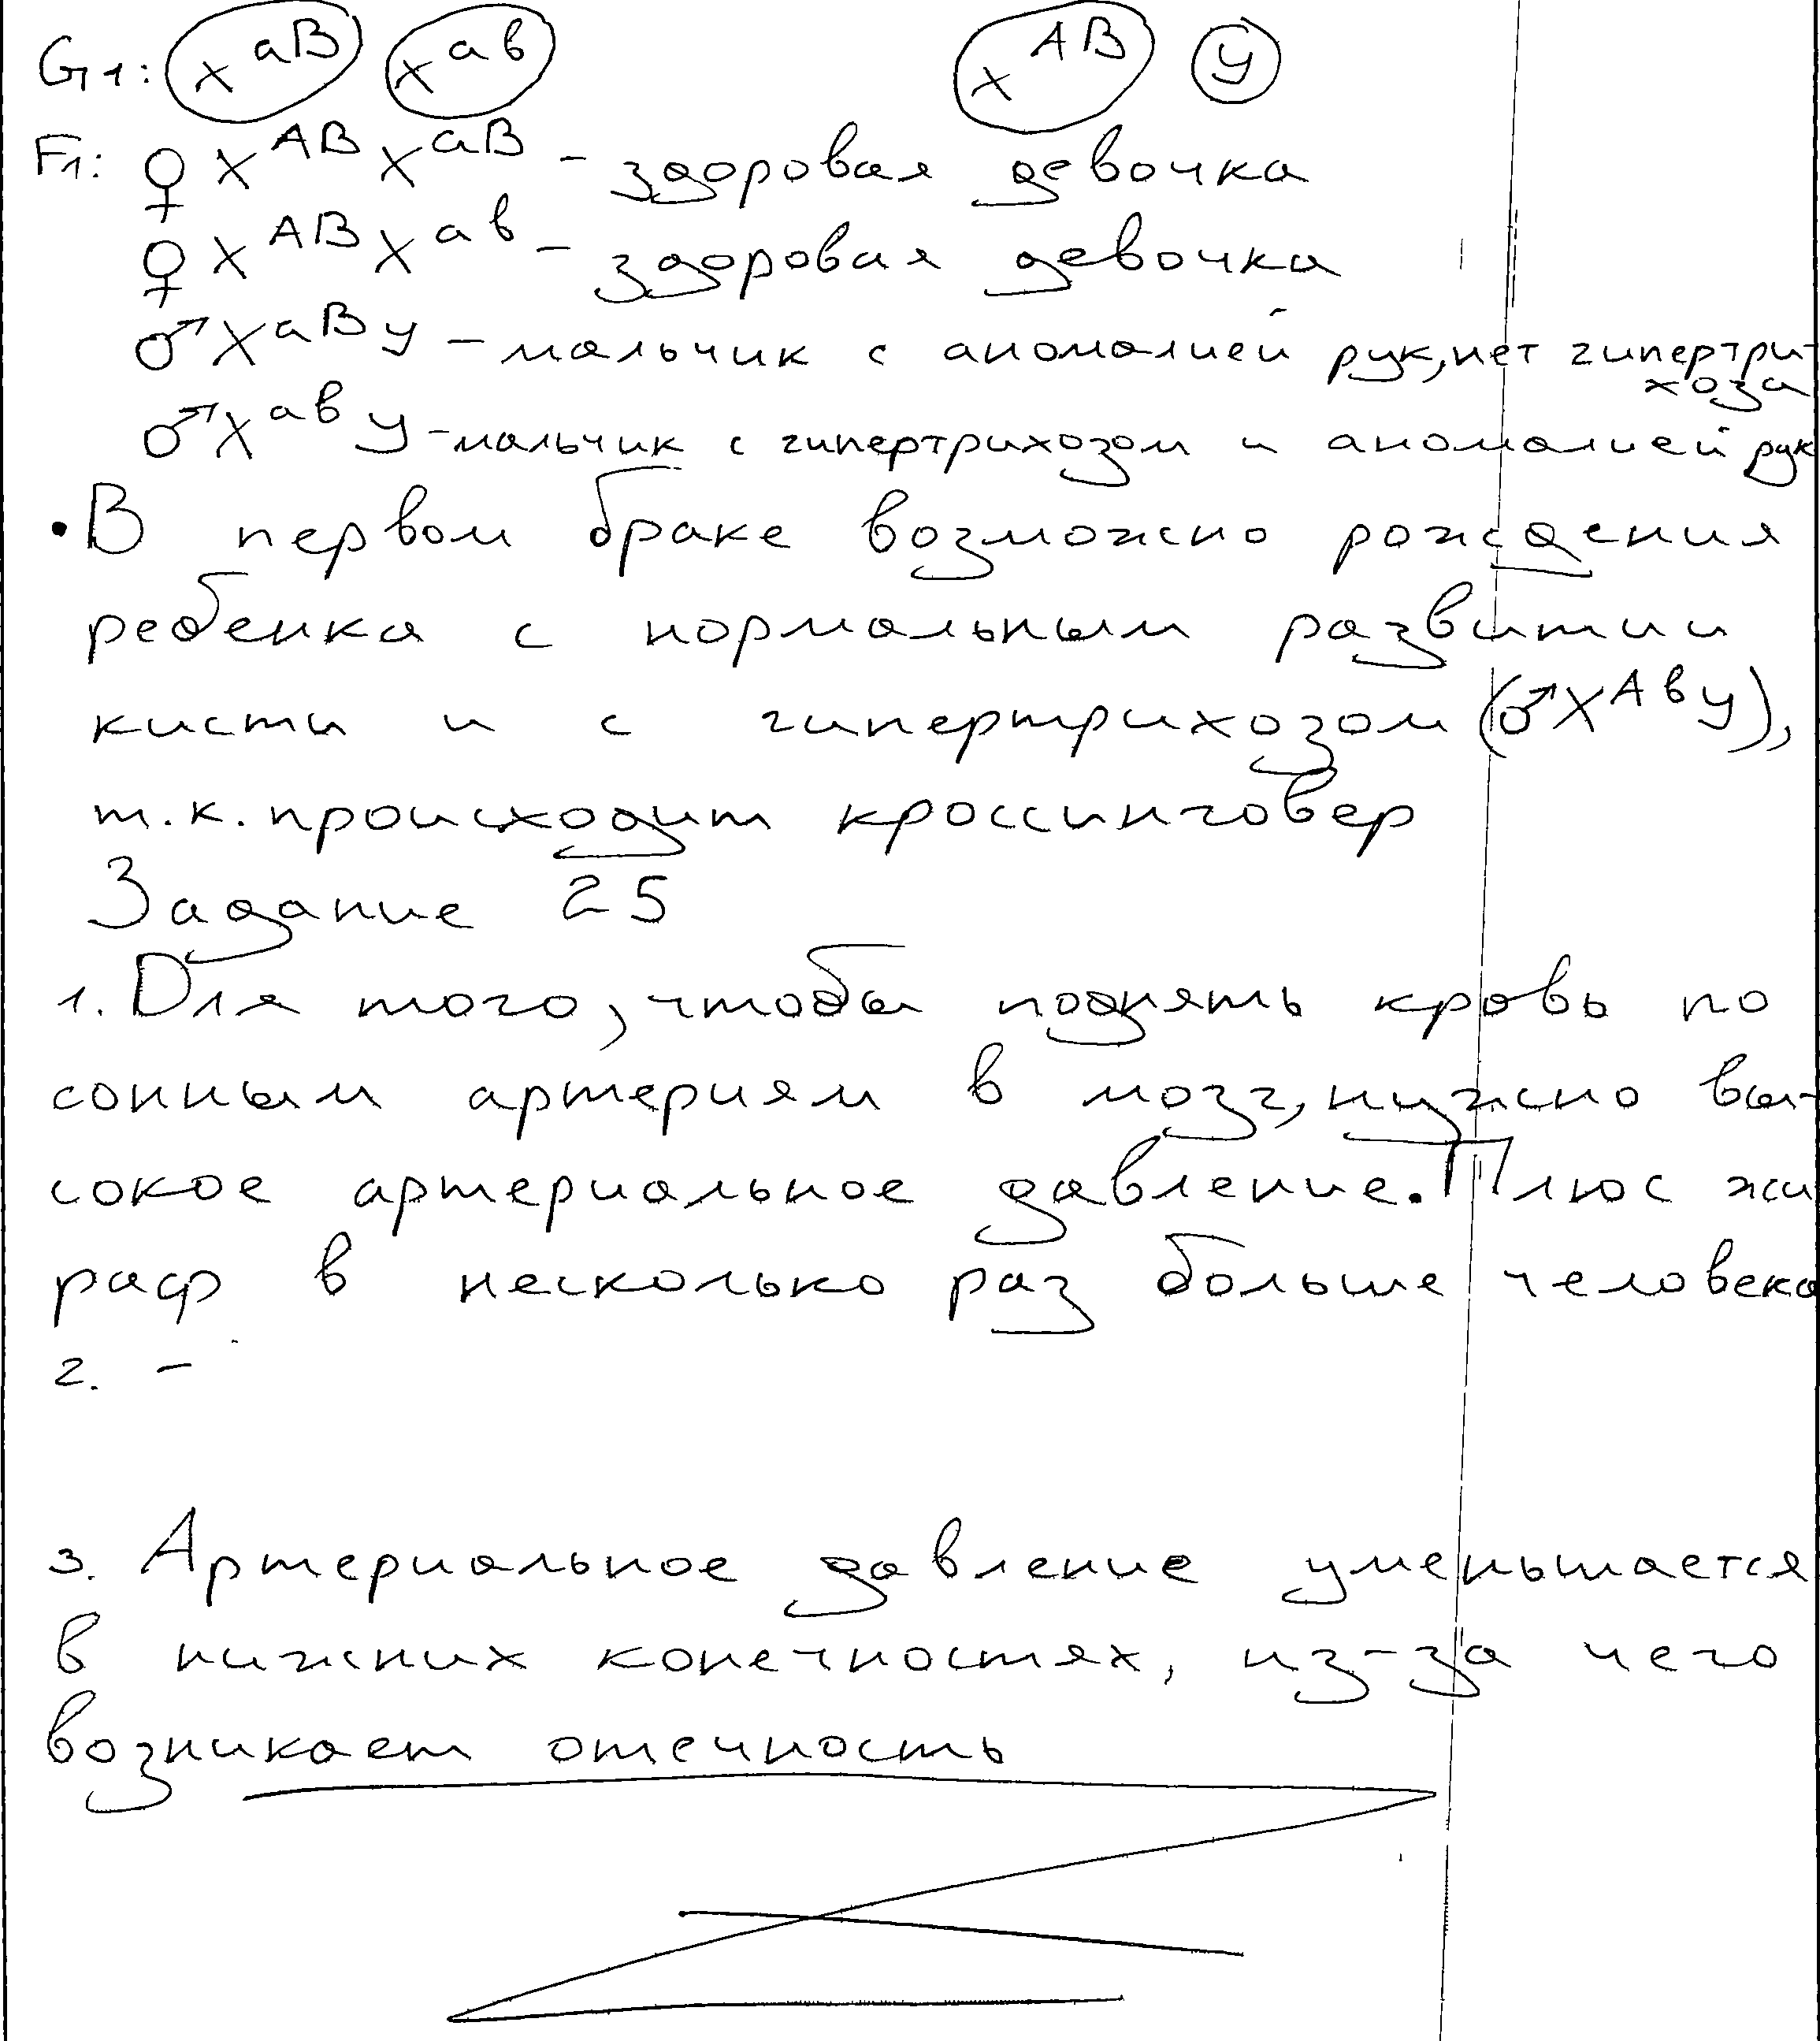 G1: X^aB X^ab X^AB У
F1: ♀ X^AB X^aB - здоровая девочка
♀ X^AB X^ab - здоровая девочка
♂ X^aB У - мальчик с аномалией рук, нет гипертри-
хоза
♂ X^ab У - мальчик с гипертрихозом и аномалией рук
• В первом браке возможно рождения
ребенка с нормальным развитии
кисти и с гипертрихозом (♂ X^Ab У),
т.к. происходит кроссинговер
Задание 25
1. Для того, чтобы поднять кровь по
сонным артериям в мозг, нужно вы-
сокое артериальное давление. Плюс жи
раф в несколько раз больше человека
2. -
3. Артериальное давление уменьшается
в нижних конечностях, из-за чего
возникает отечность